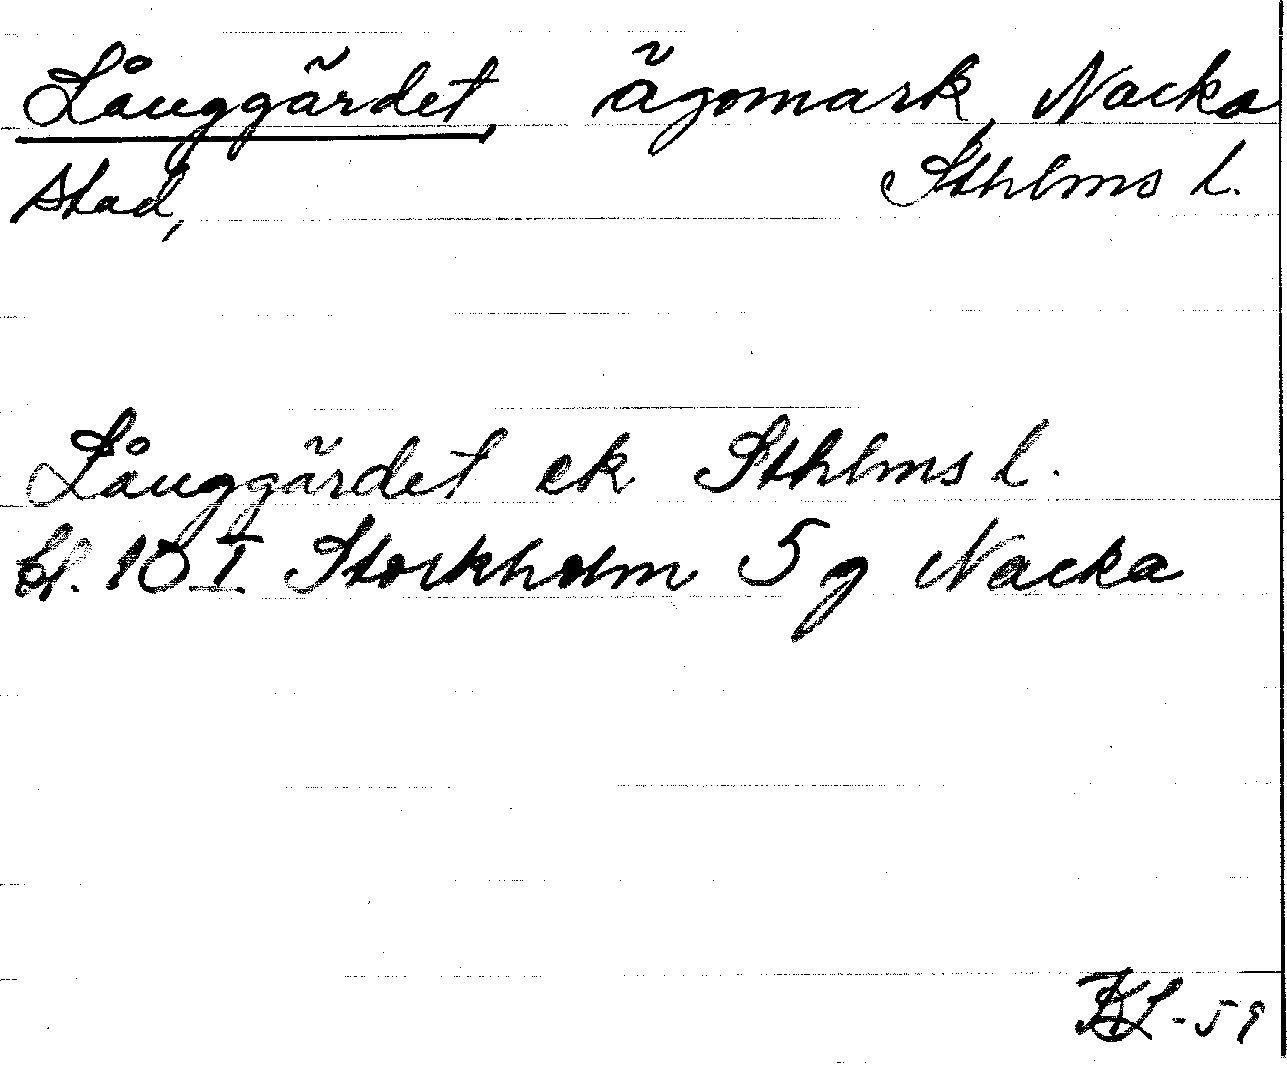 Långgärdet, ägomark, Nacka
stad, Sthlms l.
Långgärdet ek Sthlms l.
bl. 10 I Stockholm 5 g Nacka
KL-59